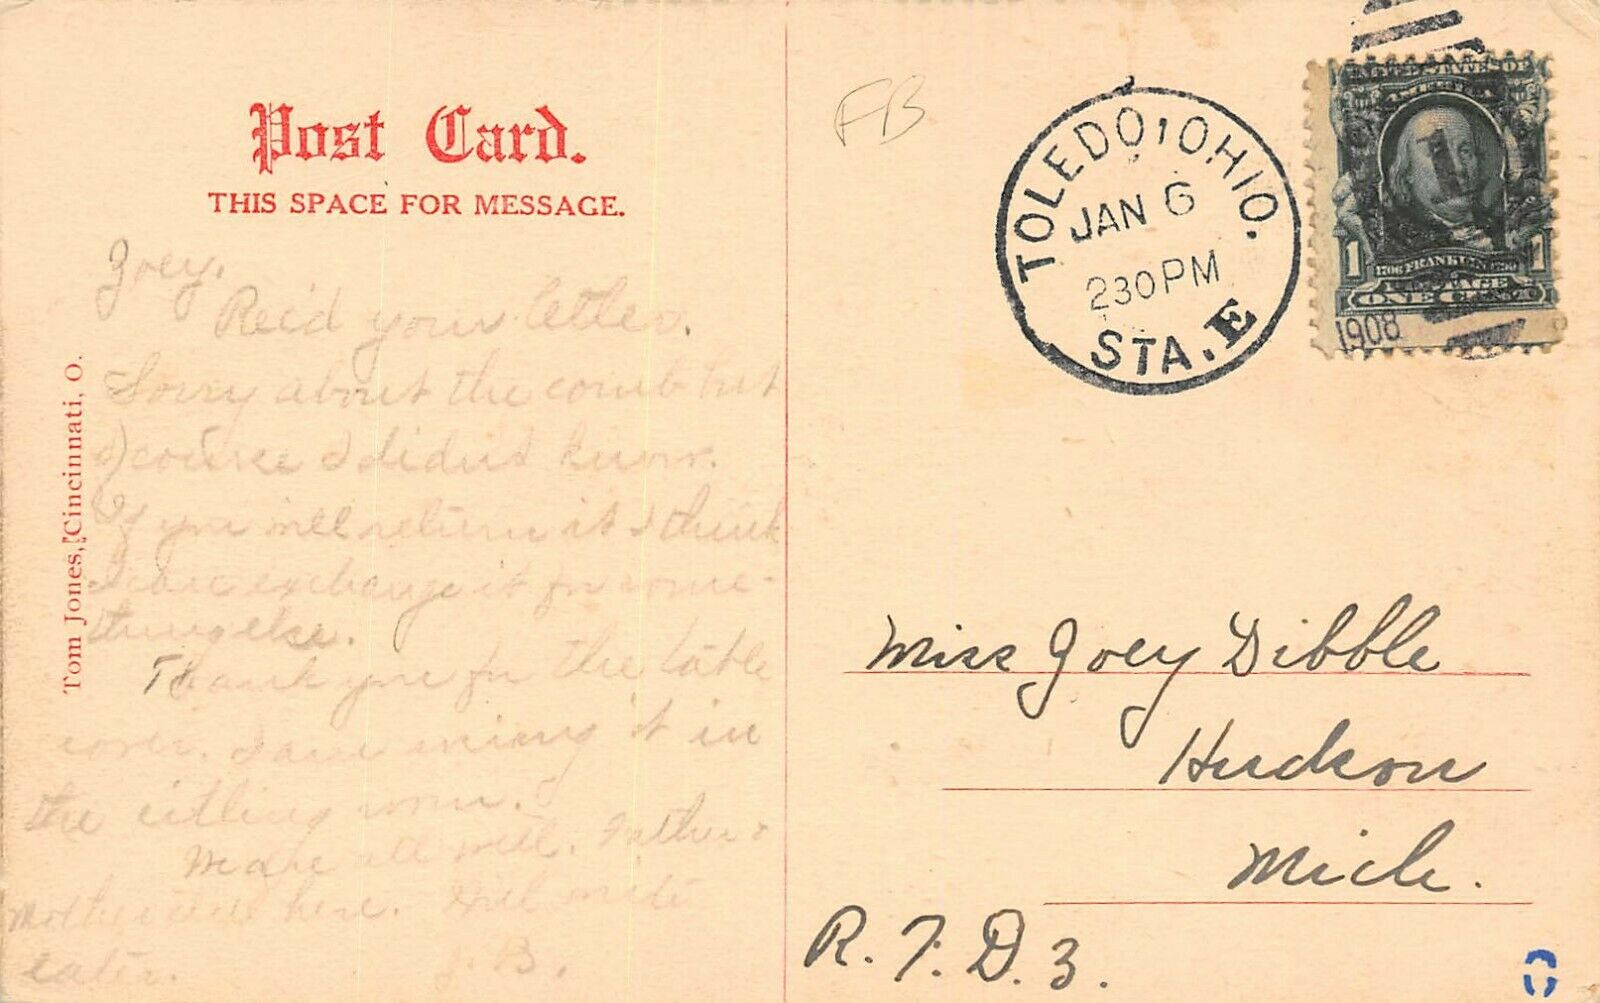 Post Card.
THIS SPACE FOR MESSAGE.
Tom Jones, [Cincinnati, O.
Zoey.
Rec'd your letter.
Sorry about the comb but
of course I didn't know.
If you will return it I think
I can exchange it for some-
thing else.
Thank you for the table
cover. I am using it in
the sitting room.
We are all well. Father &
Mother still here. Will write
later.
J. B.
FB
TOLEDO, OHIO.
JAN 6
230PM
STA. E
UNITED STATES OF
AMERICA
1
1706 FRANKLIN 1790
1
POSTAGE
ONE CENT
1908
Miss Zoey Dibble
Hudson
Mich.
R. F. D. 3.